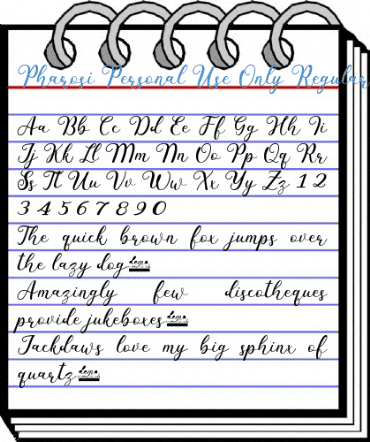 Pharosi Personal Use Only Regular
Aa Bb Cc Dd Ee Ff Gg Hh Ii
Jj Kk Ll Mm Nn Oo Pp Qq Rr
Ss Tt Uu Vv Ww Xx Yy Zz 1 2
3 4 5 6 7 8 9 0
The quick brown fox jumps over
the lazy dog
Amazingly few discotheques
provide jukeboxes
Jackdaws love my big sphinx of
quartz